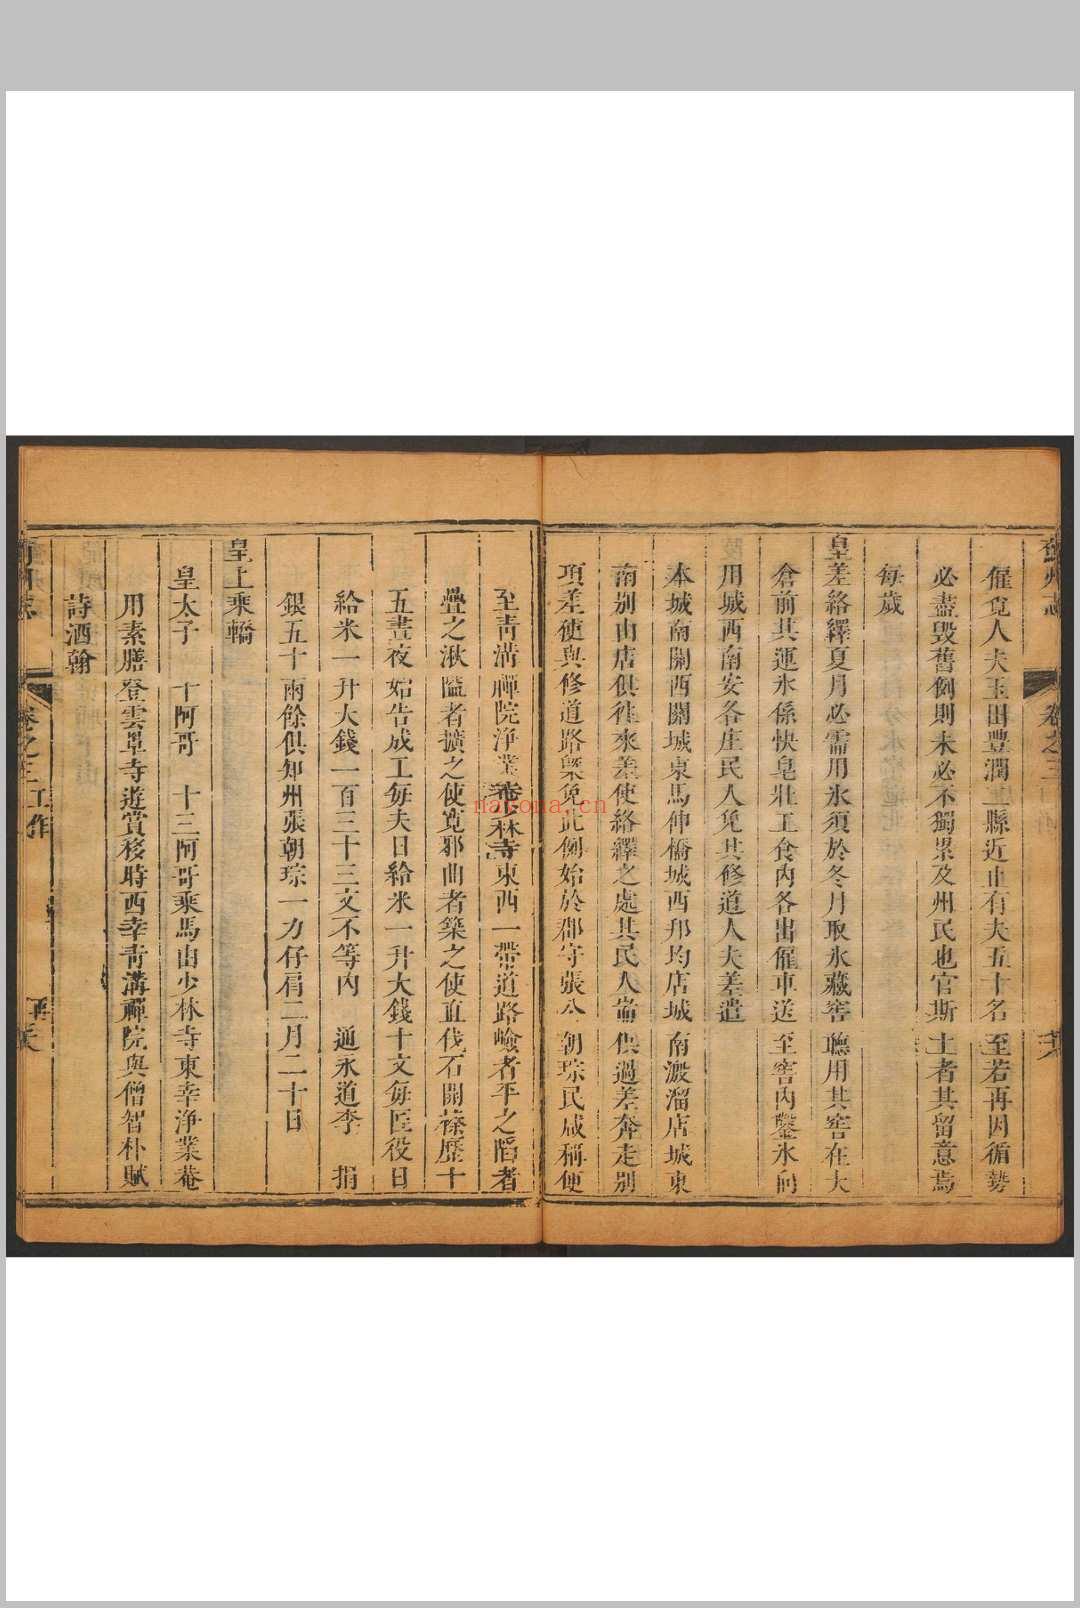 僱覓人夫玉田豐潤二縣近山有夫五十名至若再因循勢
必盡毀舊例則未必不獨累及州民也官斯土者其留意焉
每歲
皇差絡繹夏月必需用氷須於冬月取氷藏窖聽用其窖在大
倉前其運氷係快皂壯工食內各出僱車送至窖內鑿氷向
用城西南安各庄民人免其修道人夫差遣
本城南關西關城東馬伸橋城西邦均店城南澱溜店城東
南別由店俱徃來差使絡繹之處其民人當供過差奔走別
項差使與修道路槩免此例始於郡守張公朝琮民咸稱便
至青溝禪院淨業菴少林寺東西一帶道路嶮者平之䧟者
疊之湫隘者擴之使寬邪曲者築之使直伐石開榛歷十
五晝夜始告成工每夫日給米一升大錢十文每匠役日
給米一升大錢一百三十三文不等內通永道李捐
銀五十兩餘俱知州張朝琮一力仔肩二月二十日
皇上乘轎
皇太子 十阿哥 十三阿哥乘馬由少林寺東幸淨業菴
用素膳登雲罩寺遊賞移時西幸青溝禪院與僧智朴賦
詩酒翰
卷之三 工作
nayona.cn